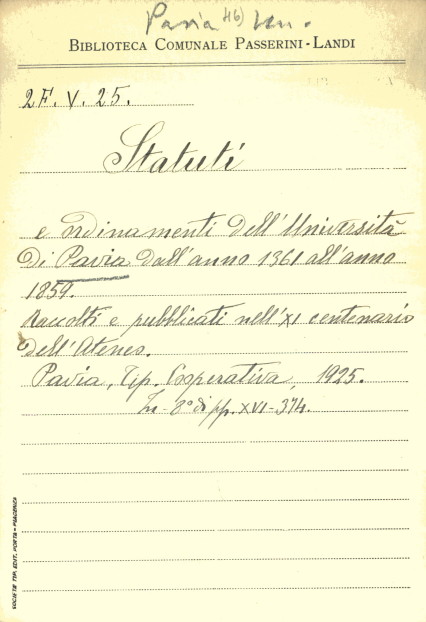 Pavia 46) Un.
BIBLIOTECA COMUNALE PASSERINI-LANDI
2F. V. 25.
Statuti
e ordinamenti dell'Università
di Pavia dall'anno 1361 all'anno
1859.
Raccolti e pubblicati nell'XI centenario
dell'Ateneo.
Pavia, Tip. Cooperativa, 1925.
In-8° di pp. XVI-374.
SOCIETÀ TIP. EDIT. PORTA - PIACENZA